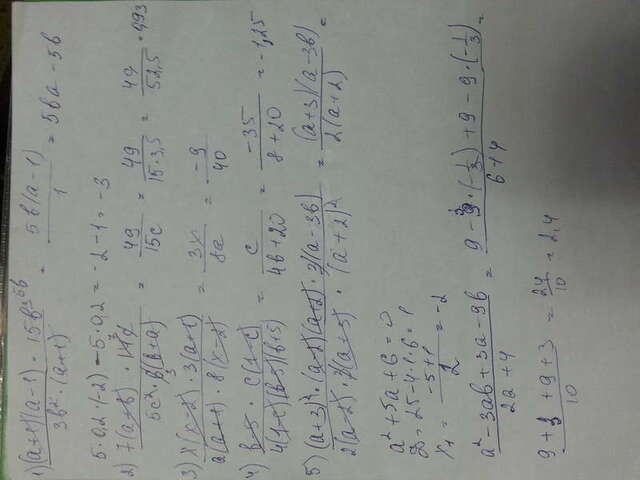 1) (a+1)(a-1) · 15b² 5b / 3b² · (a+1) = 5b(a-1) / 1 = 5ba - 5b
5·0,2·(-2) - 5·0,2 = -2 - 1 = -3
2) 7(a+b) · 14q / 5c² · b(b+a) = 49 / 15c = 49 / 15·3,5 = 49 / 52,5 ≈ 0,93
3) x(x-2) · 3(a+1) / a(a+1) · 8(x-2) = 3x / 8a = -9 / 40
4) b-5 · c(1-c) / 4(1-c)(b-5)(b+5) = c / 4b+20 = -35 / 8+20 = -1,25
5) (a+3)² · (a-2)(a+2) · 2(a-3b) / 2(a-2) · 2(a+3) · (a+2)² = (a+3)(a-3b) / 2(a+2) =
a² + 5a + 6 = 0
D = 25 - 4·1·6 = 1
x₁ = -5+1 / 2 = -2
a² - 3ab + 3a - 9b / 2a + 4 = 9 - 9·(-1/3) + 9 - 9·(-1/3) / 6+4 =
9 + 3 + 9 + 3 / 10 = 24 / 10 = 2,4